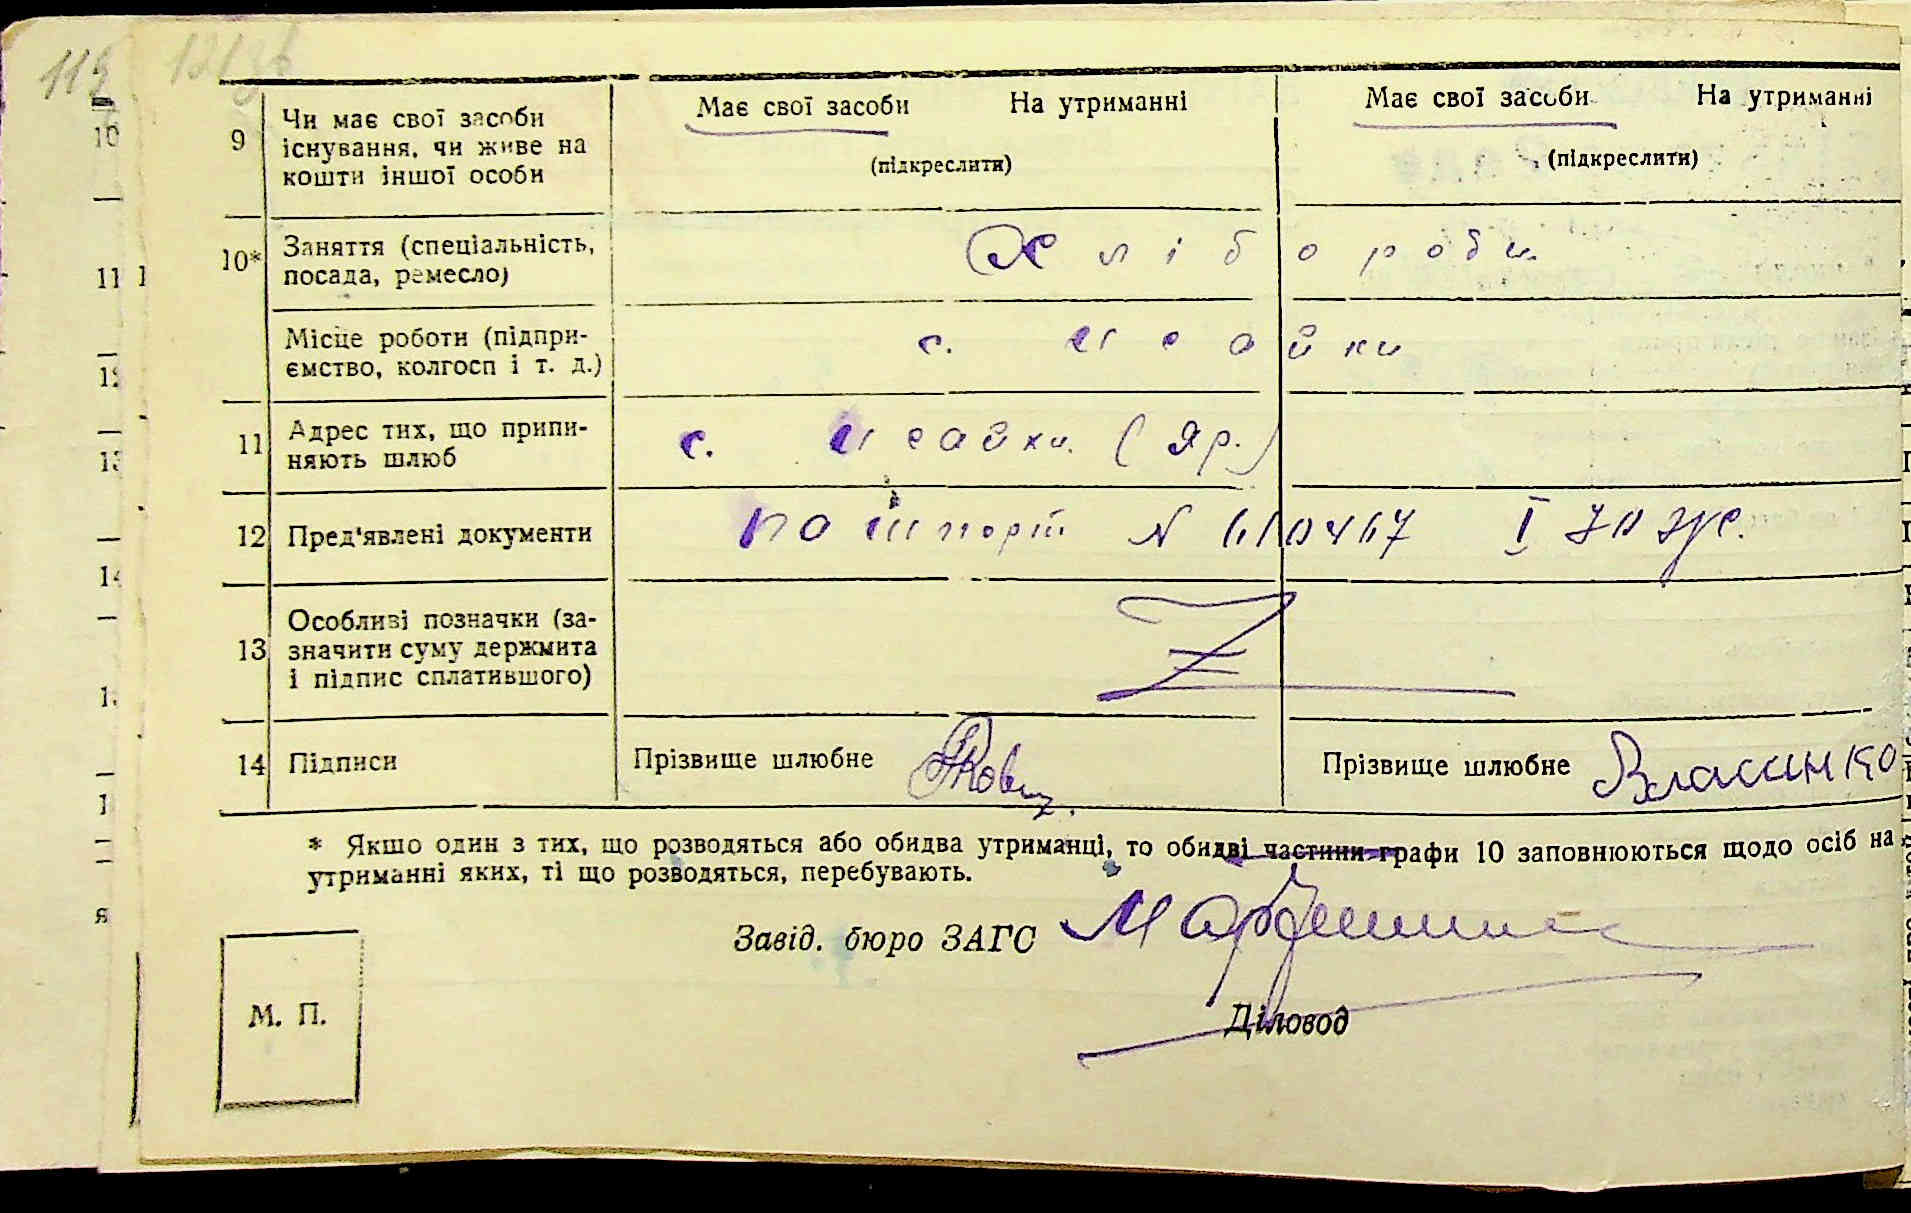 Має свої засоби На утриманні Має свої засоби На утриманні
9 Чи має свої засоби
існування, чи живе на
кошти іншої особи
(підкреслити) (підкреслити)
10* Заняття (спеціальність,
посада, ремесло)
Хлібороби
Місце роботи (підпри-
ємство, колгосп і т. д.)
с. Исайки
11 Адрес тих, що припи-
няють шлюб
с. Исайки (Яр.)
12 Пред'явлені документи
пошпорт N
13 Особливі позначки (за-
значити суму держмита
і підпис сплатившого)
14 Підписи
Прізвище шлюбне
Прізвище шлюбне Власинко
* Якшо один з тих, що розводяться або обидва утриманці, то обидві частини графи 10 заповнюються щодо осіб на
утриманні яких, ті що розводяться, перебувають.
Завід. бюро ЗАГС
Діловод
М. П.